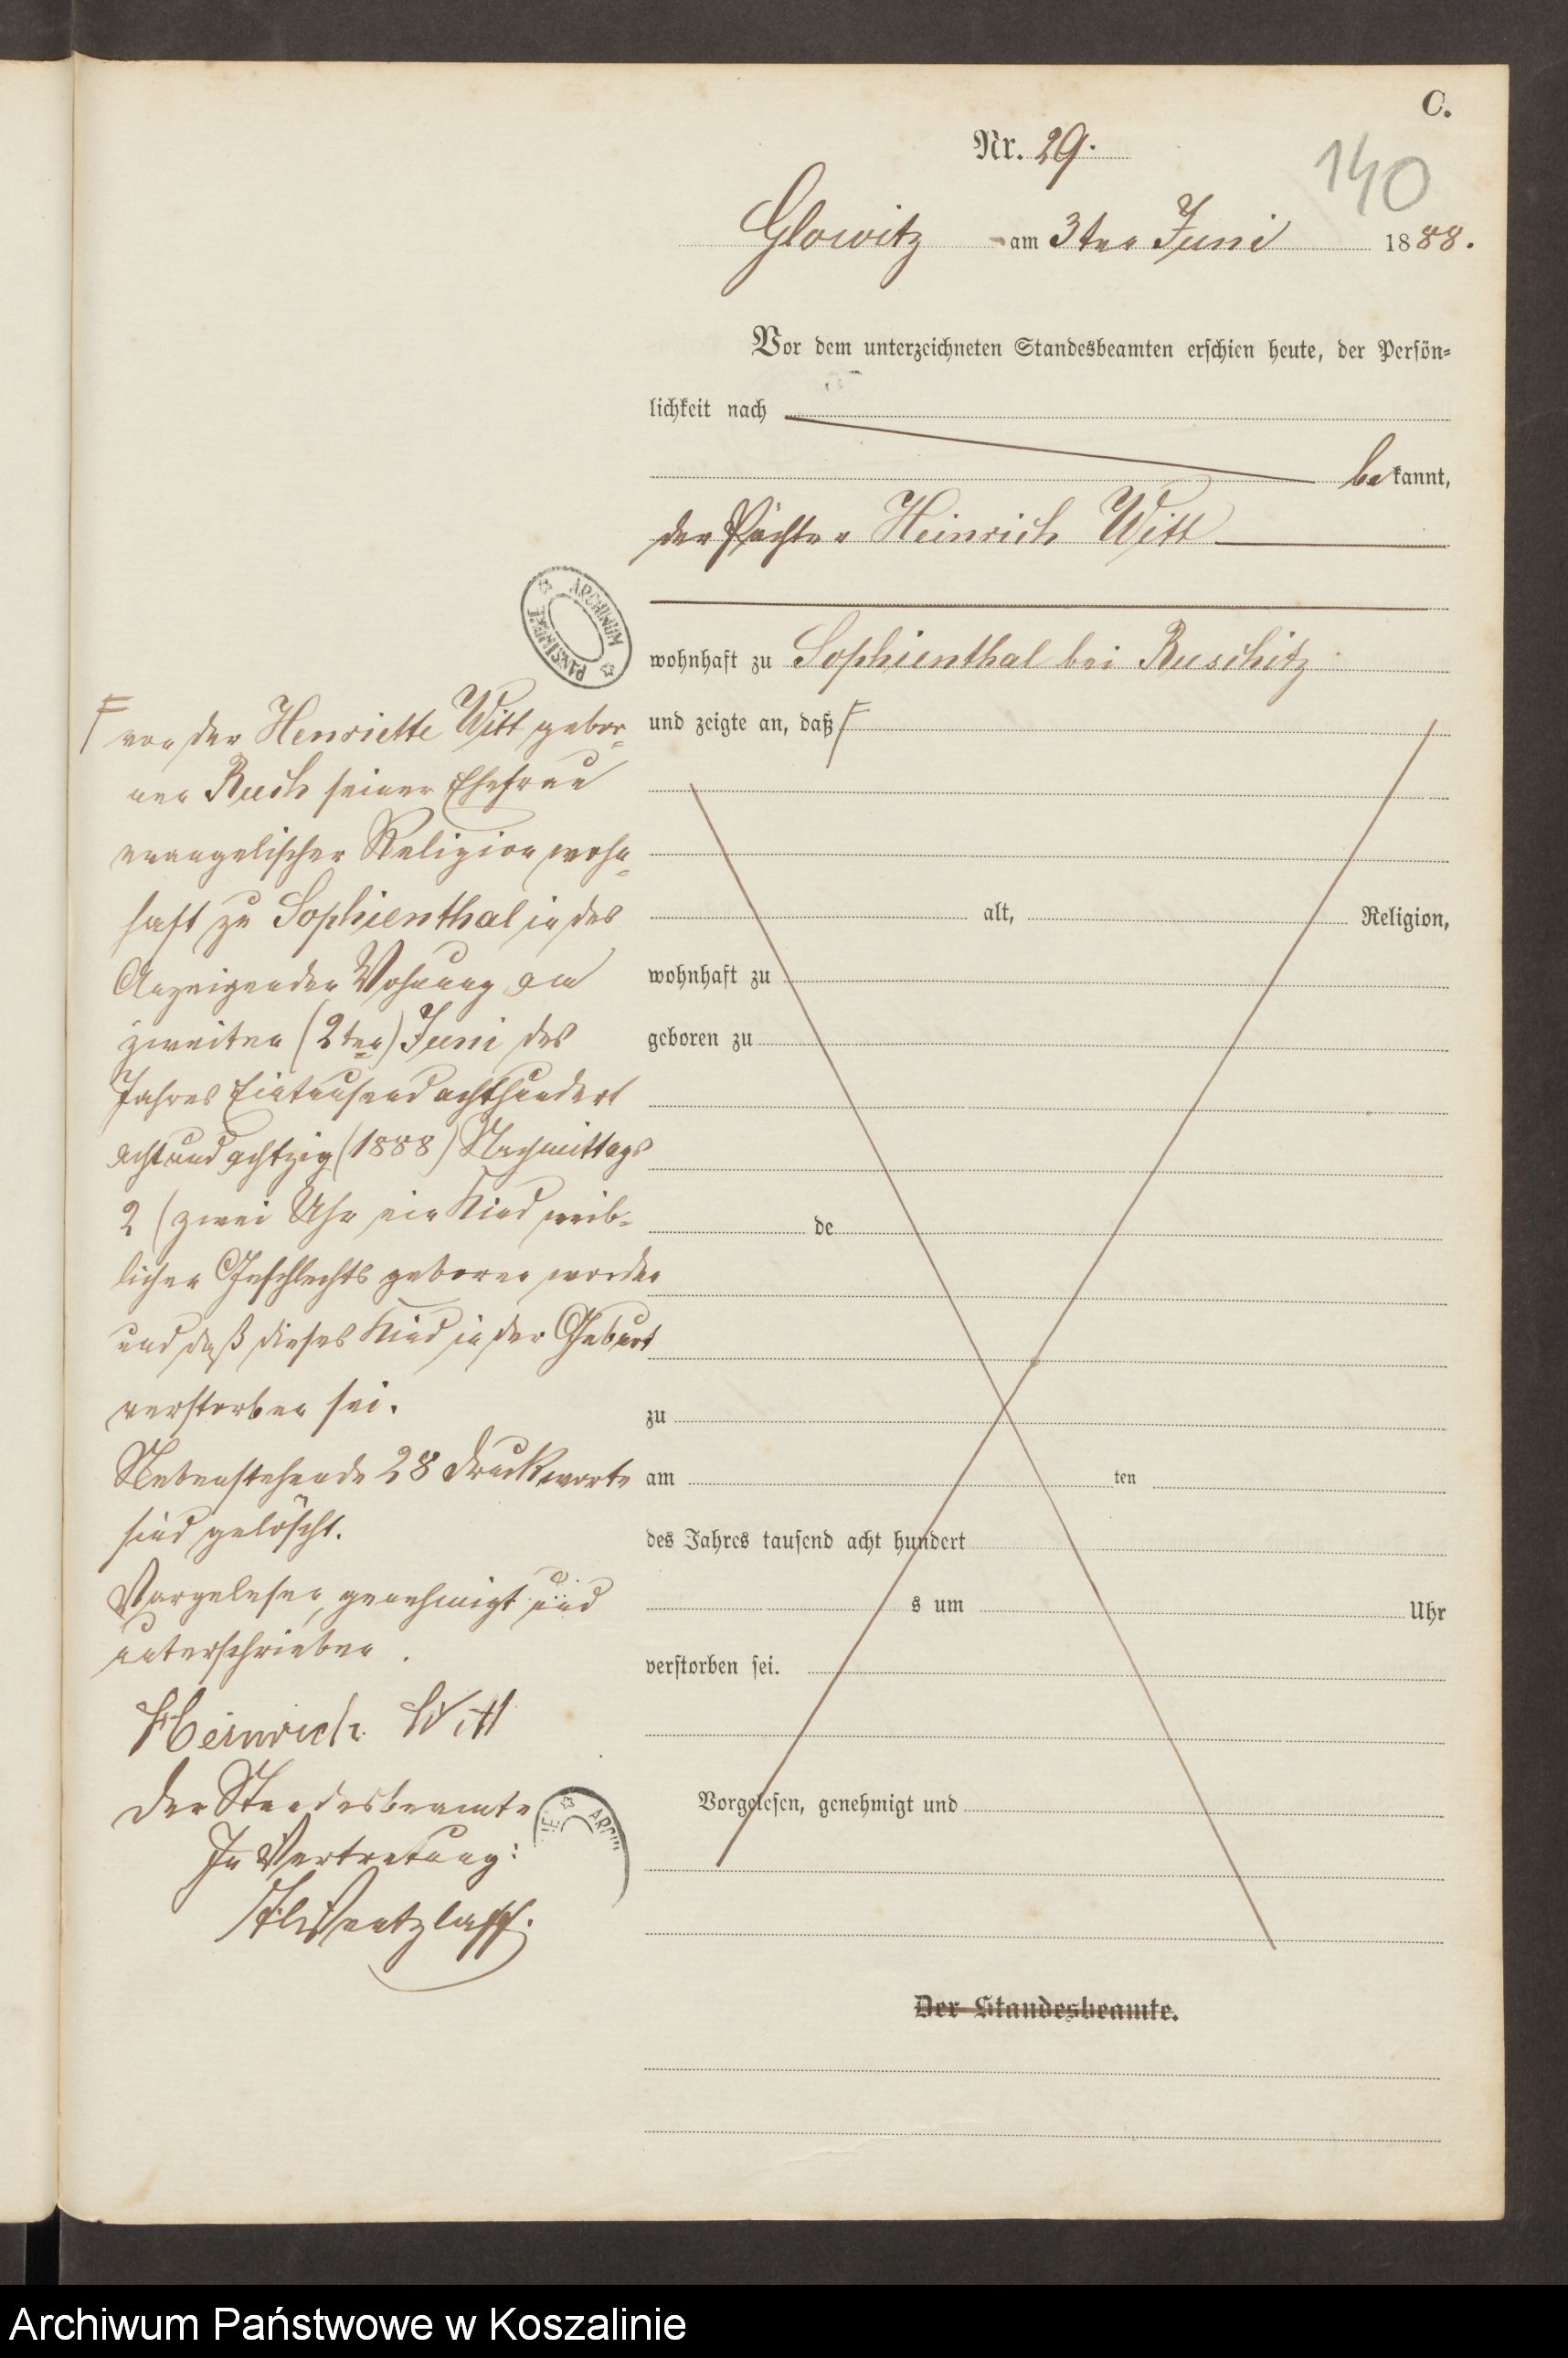 C.
Nr. 29.
140
Glowitz am 3ten Juni 1888.
Vor dem unterzeichneten Standesbeamten erschien heute, der Persön-
lichkeit nach
bekannt,
der Pächter Heinrich Witt
wohnhaft zu Sophienthal bei Ruschitz
und zeigte an, daß F
F von der Henriette Witt gebor-
nen Ruch seiner Ehefrau
evangelischer Religion wohn-
haft zu Sophienthal in des
Anzeigenden Wohnung am
zweiten (2ten) Juni des
Jahres Eintausend achthundert
acht und achtzig (1888) Nachmittags
2 (zwei Uhr ein Kind weib-
lichen Geschlechts geboren worden
und daß dieses Kind in der Geburt
verstorben sei.
Nebenstehende 28 Druckworte
sind gelöscht.
Vorgelesen, genehmigt und
unterschrieben.
Heinrich Witt
Der Standesbeamte
In Vertretung:
Wentzlaff.
alt, Religion,
wohnhaft zu
geboren zu
de
zu
am ten
des Jahres tausend acht hundert
s um Uhr
verstorben sei.
Vorgelesen, genehmigt und
Der Standesbeamte.
ARCHIWUM PAŃSTWOWE
Archiwum Państwowe w Koszalinie